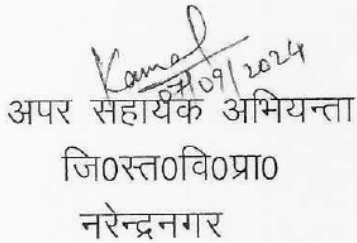 Kamal
07/09/2024
अपर सहायक अभियन्ता
जि0स्त0वि0प्रा0
नरेन्द्रनगर